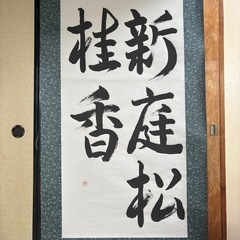 新庭松
桂香